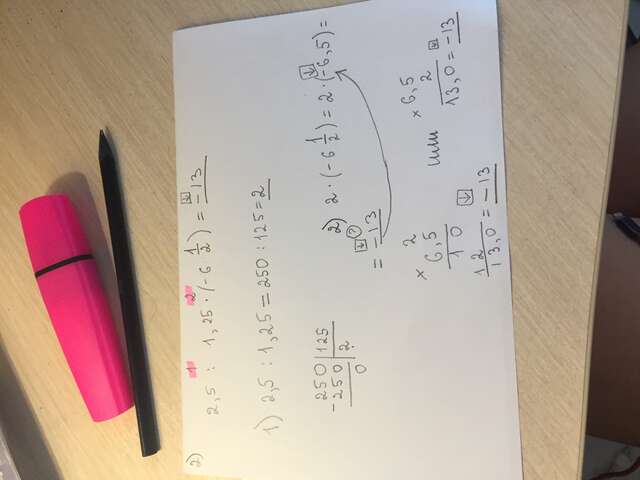 2)
1 2
2,5 : 1,25 · (-6 1/2) = -13
1) 2,5 : 1,25 = 250 : 125 = 2
250 | 125
- 250 | 2
0
2) 2 · (-6 1/2) = 2 · (-6,5) =
?
= -13
× 2
6,5
1 0
1 2
13,0 = -13
или
× 6,5
2
13,0 = -13